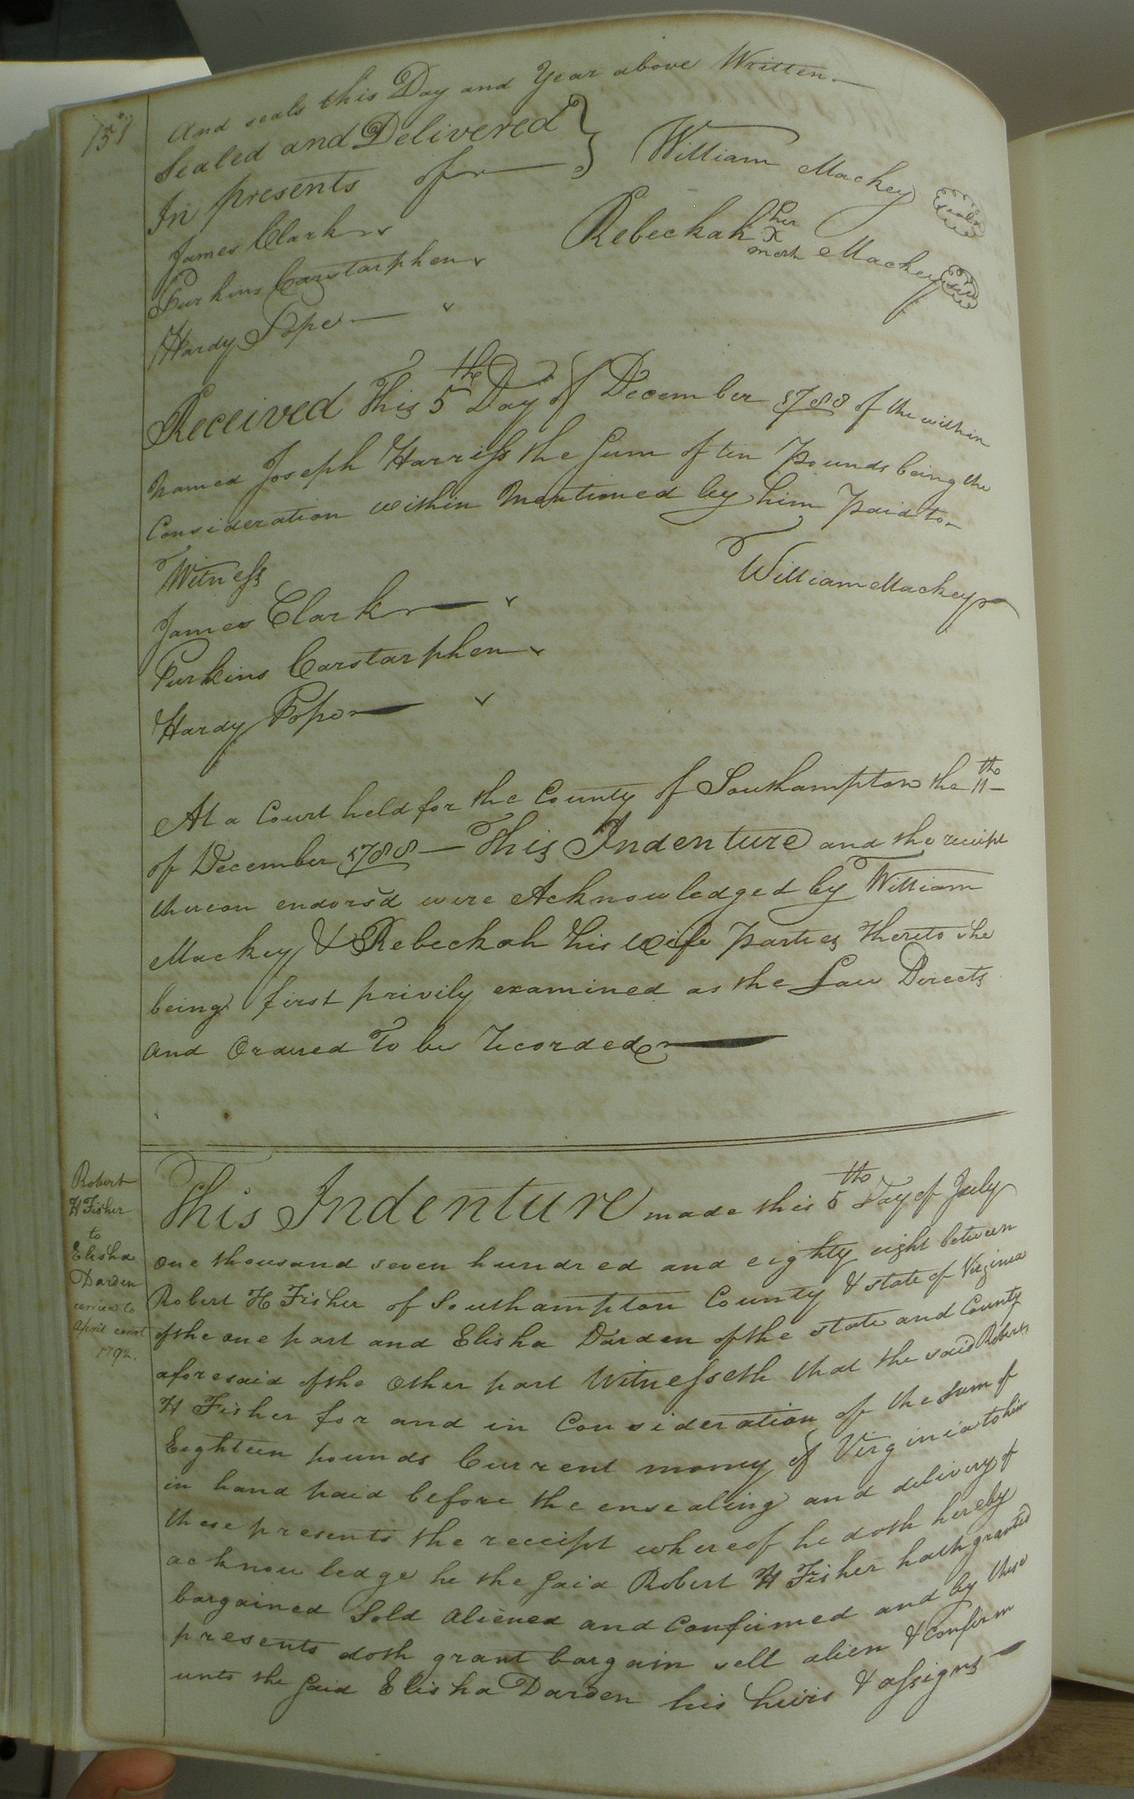 151
And seals this Day and Year above Written
Sealed and Delivered } William Mackey seal
In presents of
Rebeckah her X mark Mackey seal
James Clark
Purkins Carstarphen
Hardy Pope
Received This 5th Day of December 1788 of the within
named Joseph Harriss the Sum of ten Pounds being the
Consideration within Mentioned by him Paid to
Witness William Mackey
James Clark
Purkins Carstarphen
Hardy Pope
At a Court held for the County of Southampton the 11th
of December 1788 This Indenture and the receipt
thereon endorsd were Acknowledged by William
Mackey & Rebeckah his wife Parties Thereto she
being first privily examined as the Law Directs
and Ordered To be Recorded
Robert
H Fisher
to
Elisha
Darden
April court
1792.
This Indenture made this 5th Day of July
One thousand seven hundred and eighty eight between
Robert H Fisher of Southampton County & state of Virginia
of the one part and Elisha Darden of the state and County
aforesaid of the Other part Witnesseth that the said Robert
H Fisher for and in Consideration of the sum of
Eighteen pounds Current money of Virginia to him
in hand paid before the ensealing and delivery of
these presents the receipt whereof he doth hereby
acknowledge he the said Robert H Fisher hath granted
bargained Sold aliened and Confirmed and by these
presents doth grant bargain sell alien & Confirm
unto the said Elisha Darden his heirs & assigns